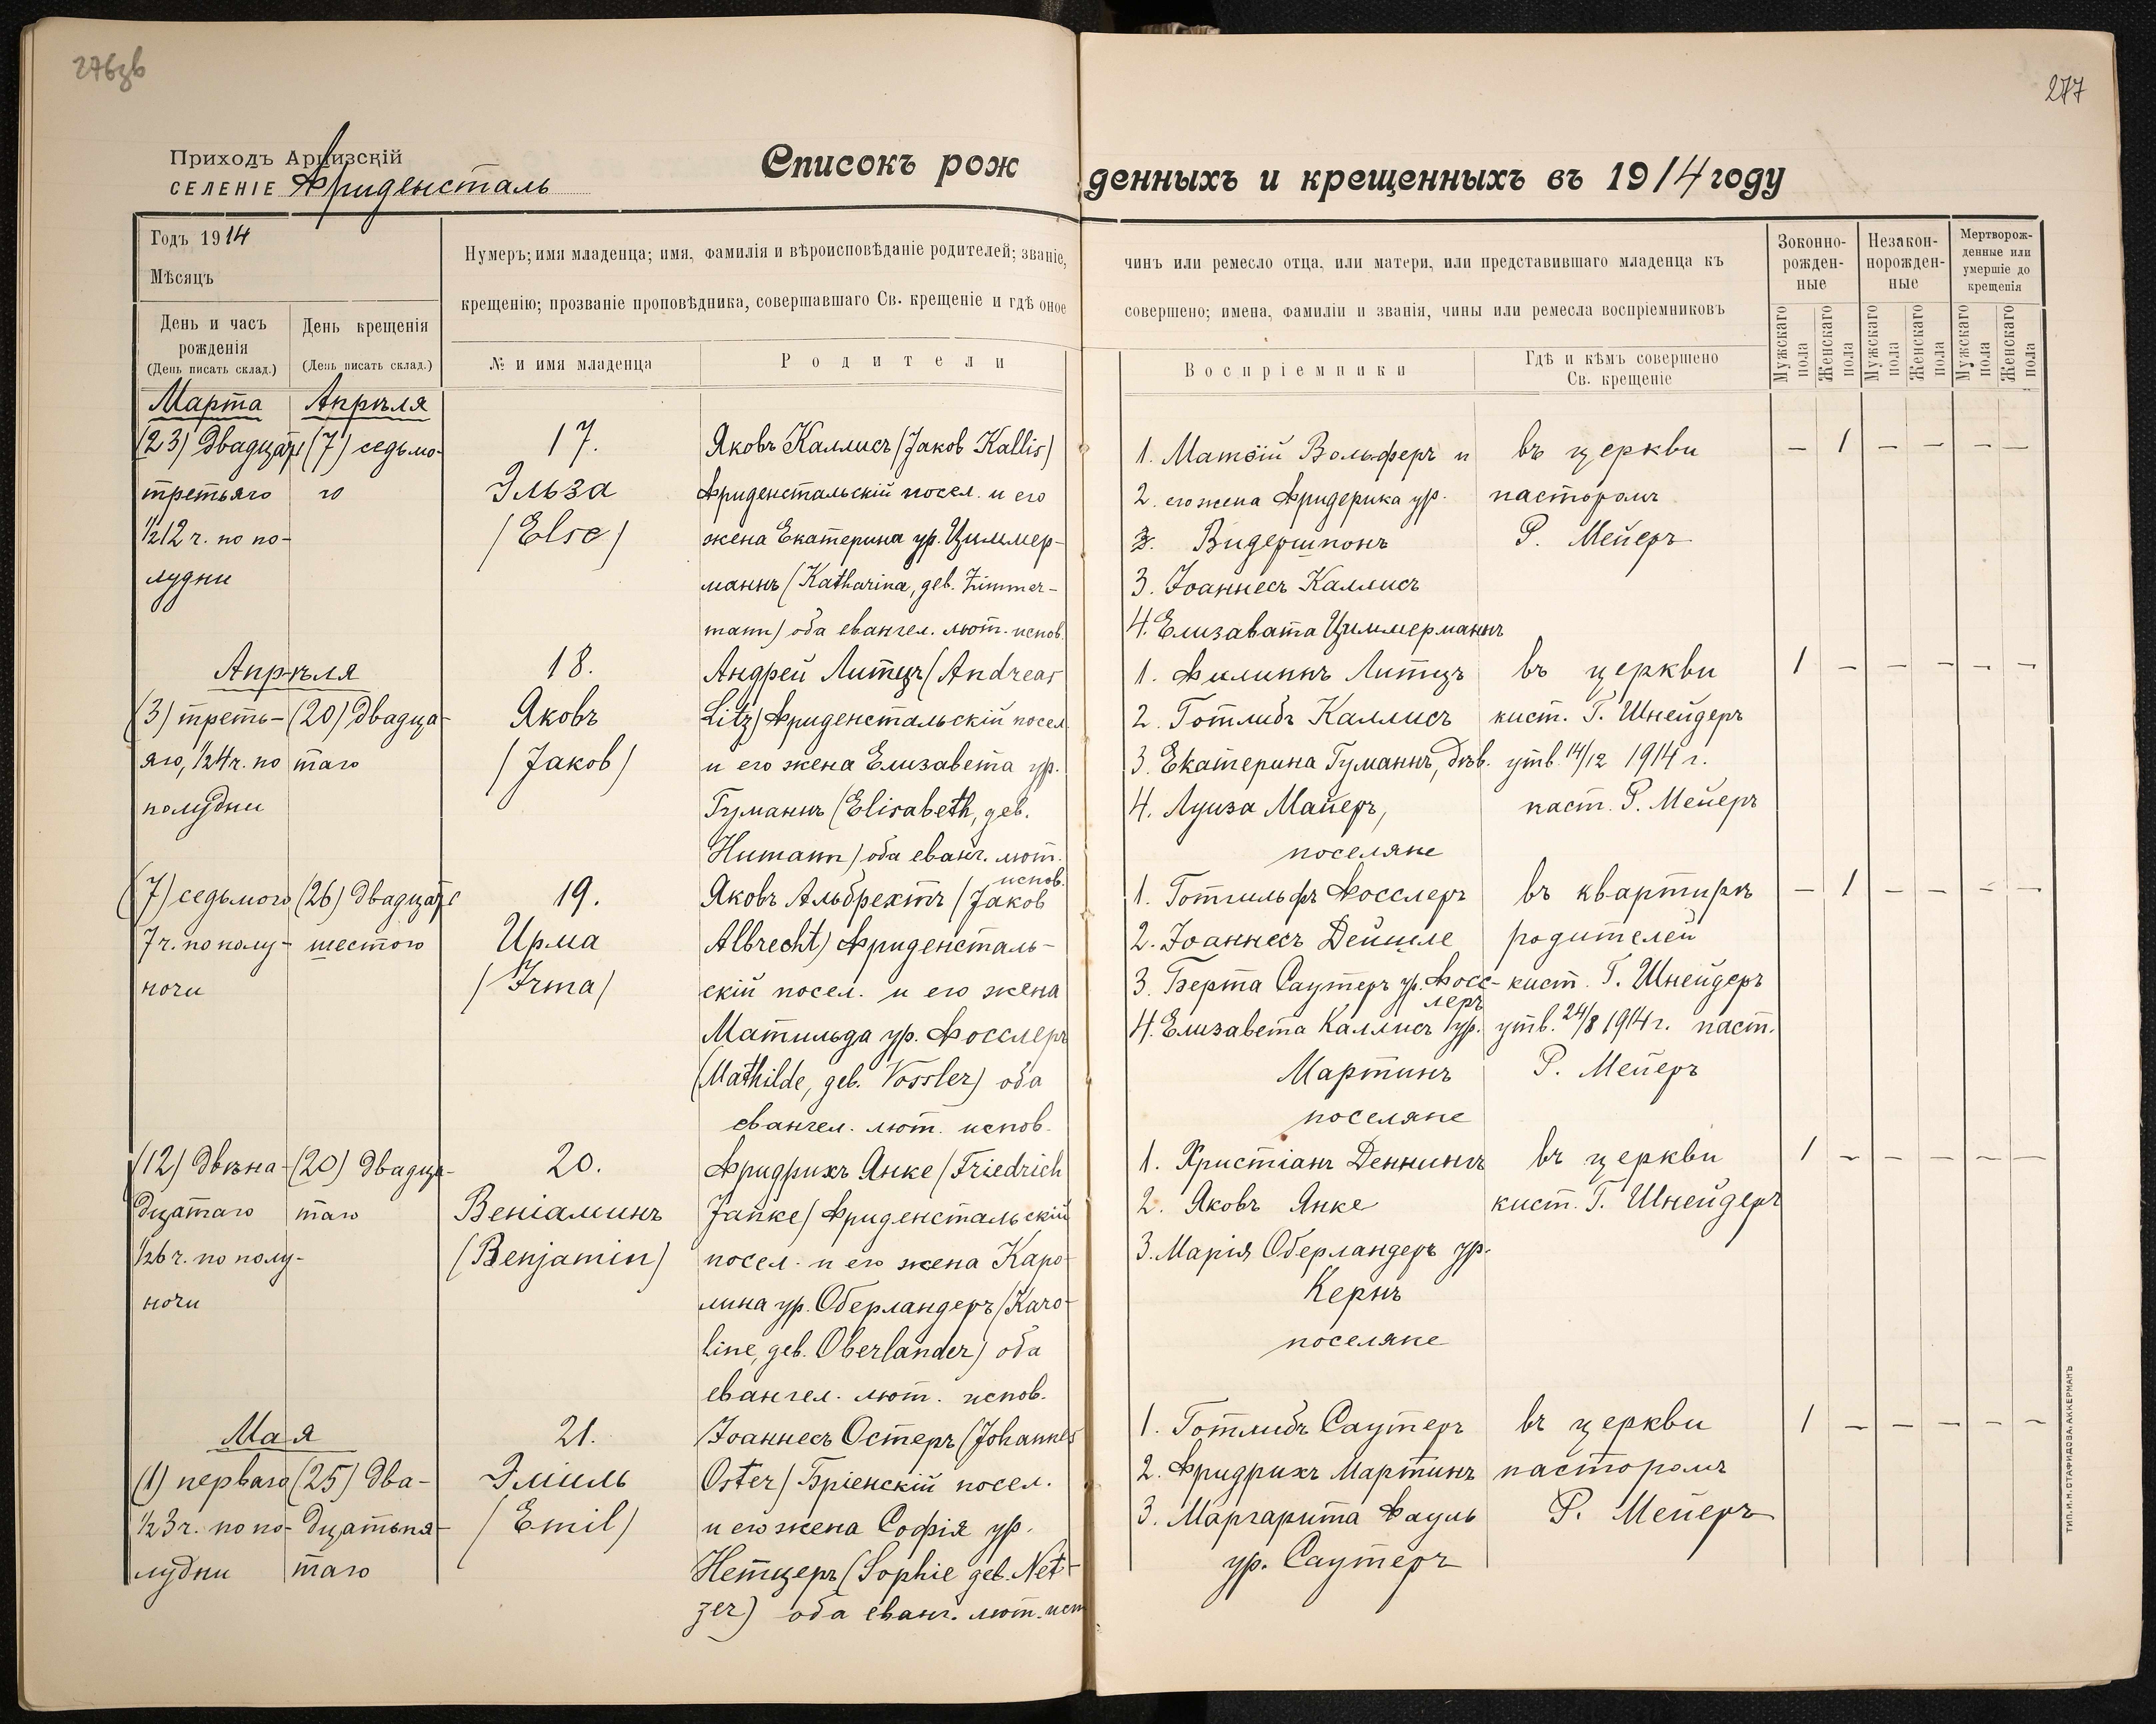 276зв
277
Приходъ Арцизскій
СЕЛЕНІЕ Фриденсталь
Списокъ рожденныхъ и крещенныхъ въ 1914 году
Годъ 1914
Мѣсяцъ
Нумеръ; имя младенца; имя, фамилія и вѣроисповѣданіе родителей; званіе,
крещенію; прозваніе проповѣдника, совершавшаго Св. крещеніе и гдѣ оное
чинъ или ремесло отца, или матери, или представившаго младенца къ
совершено; имена, фамиліи и званія, чины или ремесла воспріемниковъ
День и часъ
рожденія
(День писать склад.)
День крещенія
(День писать склад.)
№ и имя младенца
Родители
Воспріемники
Гдѣ и кѣмъ совершено
Св. крещеніе
Зоконно-
рожден-
ные
Незакон-
норожден-
ные
Мертворож-
денные или
умершіе до
крещенія
Мужскаго пола
Женскаго пола
Мужскаго пола
Женскаго пола
Мужскаго пола
Женскаго пола
Марта
(23) двадцать
третьяго
1/2 12 ч. по по-
лудни
Апрѣля
(7) седьмо-
го
17.
Эльза
(Else)
Яковъ Каллисъ (Jакоb Kallis)
Фриденстальскій посел. и его
жена Екатерина ур. Циммер-
маннъ (Katharina, geb. Zimmer-
mann) оба евангел. лют. испов.
1. Матѳій Вольферъ и
2. его жена Фридерика ур.
3. Видершпонъ
3. Іоаннесъ Каллисъ
4. Елизавата Циммерманнъ
въ церкви
пасторомъ
Р. Мейеръ
— 1 — — — —
Апрѣля
(3) треть-
яго, 1/2 4 ч. по
полудни
(20) двадца-
таго
18.
Яковъ
(Jакоb)
Андрей Литцъ (Andreas
Litz) Фриденстальскій посел.
и его жена Елизавета ур.
Гуманнъ (Elisabeth, geb.
Humann) оба еванг. лют.
испов.
1. Филиппъ Литцъ
2. Готлибъ Каллисъ
3. Екатерина Гуманнъ, дѣв.
4. Луиза Майеръ,
поселяне
въ церкви
кист. Г. Шнейдеръ
утв. 14/12 1914 г.
паст. Р. Мейеръ
1 — — — — —
(7) седьмого
7 ч. по полу-
ночи
(26) двадцать
шестого
19.
Ирма
(Irma)
Яковъ Альбрехтъ (Jакоb
Albrecht) Фриденсталь-
скій посел. и его жена
Матильда ур. Фосслеръ
(Mathilde, geb. Vossler) оба
евангел. лют. испов.
1. Готгильфъ Фосслеръ
2. Іоаннесъ Дейшле
3. Берта Саутеръ ур. Фосс-
леръ
4. Елизавета Каллисъ ур.
Мартинъ
поселяне
въ квартирѣ
родителей
кист. Г. Шнейдеръ
утв. 24/8 1914 г. паст.
Р. Мейеръ
— 1 — — — —
(12) двѣна-
дцатаго
1/2 6 ч. по полу-
ночи
(20) двадца-
таго
20.
Веніаминъ
(Benjamin)
Фридрихъ Янке (Friedrich
Janke) Фриденстальскій
посел. и его жена Каро-
лина ур. Оберландеръ (Karo-
line, geb. Oberlander) оба
евангел. лют. испов.
1. Христіанъ Деннингъ
2. Яковъ Янке
3. Марія Оберландеръ ур.
Кернъ
поселяне
въ церкви
кист. Г. Шнейдеръ
1 — — — — —
Мая
(1) перваго
1/2 3 ч. по по-
лудни
(25) два-
дцатьпя-
таго
21.
Эмиль
(Emil)
Іоаннесъ Остеръ (Johannes
Oster) Бріенскій посел.
и его жена Софія ур.
Нетцеръ (Sophie geb. Net-
zer) оба еванг. лют. исп
1. Готлибъ Саутеръ
2. Фридрихъ Мартинъ
3. Маргарита Фауль
ур. Саутеръ
въ церкви
пасторомъ
Р. Мейеръ
1 — — — — —
ТИП. И. Н. СТАФИДОВА. АККЕРМАНЪ